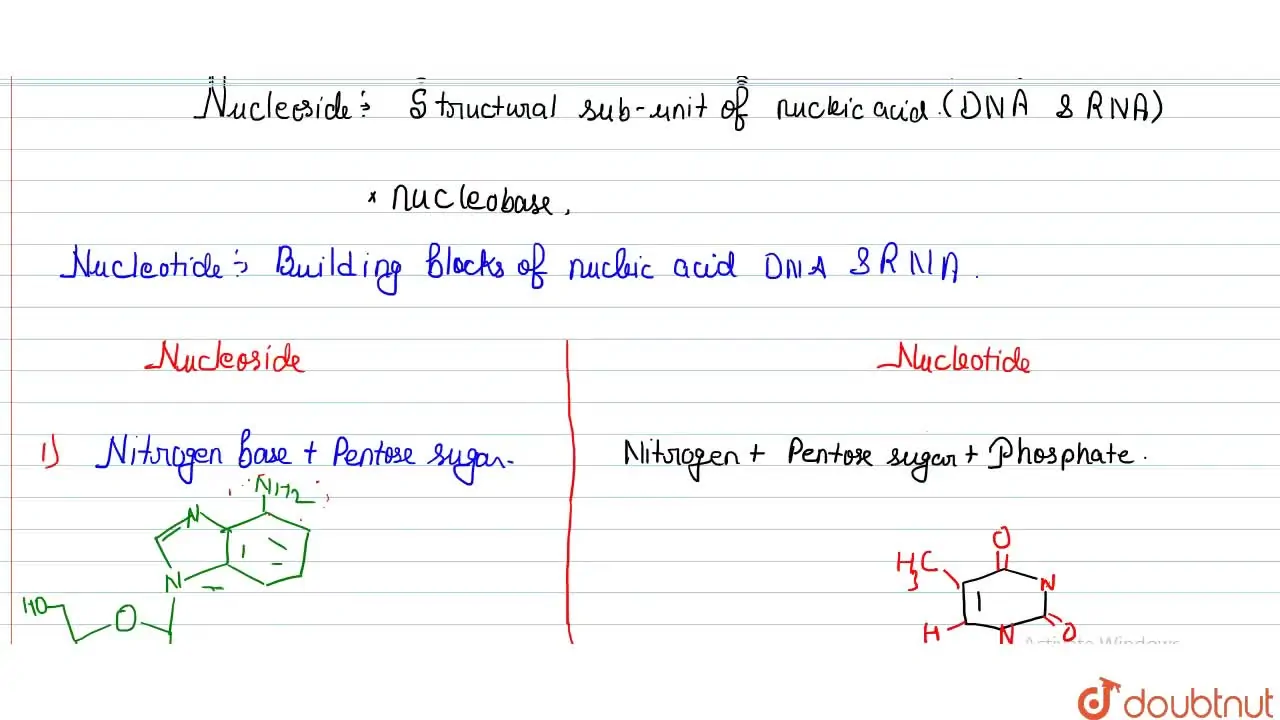 Nucleoside :- Structural sub-unit of nucleic acid. (DNA & RNA)
* nucleobase,
Nucleotide :- Building blocks of nucleic acid DNA & RNA.
Nucleoside
Nucleotide
1) Nitrogen base + Pentose sugar.
Nitrogen + Pentose sugar + Phosphate.
NH2
N
N
HO
O
O
H3C
N
H
N
O
Activate Windows
doubtnut